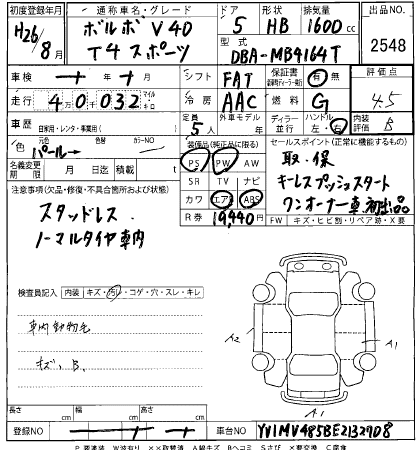 初度登録年月 通称車名・グレード ドア 形状 排気量 出品NO.
H26/8月 ボルボ V40 5 HB 1600cc 2548
T4 スポーツ 型式 DBA-MB4164T
車検 年 月 シフト FAT 保証書 有 無 評価点
走行 40千032 マイル キロ 冷房 AAC 燃料 G 4.5
車歴 自家用・レンタ・事業用( ) 定員 5人 外車モデル ディーラー 並行 ハンドル 左・右 内装評価 B
色 元色 パール 色替 カラーNO 装備品(純正品に限る) セールスポイント(正常に機能するもの)
名義変更期限 月 日迄 積載 t PS PW AW 取・保
注意事項(欠品・修復・不具合箇所および状態) SR TV ナビ キーレスプッシュスタート
スタッドレス カワ エアB ABS ワンオーナー車
ノーマルタイヤ車内 R券 19,440円 FW キズ・ヒビ割・リペア跡・X要
検査員記入 内装 キズ・汚レ・コゲ・穴・スレ・キレ
車内動物毛
キズ、B、
A2 A1
A1
長さ cm 幅 cm 高さ cm
登録NO 車台NO YV1MV485BE2132908
P 要塗装 W波有り ××取替済 A線キズ Bヘコミ Sさび X要交換 C腐食